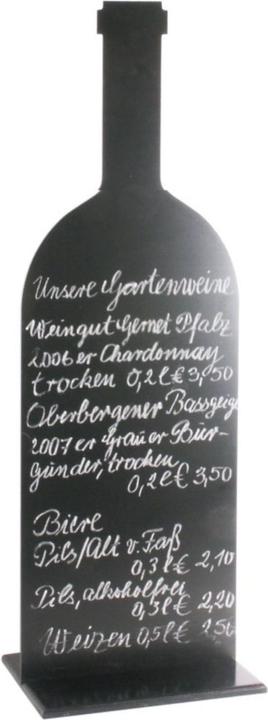 Unsere Gartenweine
Weingut Gernet Pfalz
2006er Chardonnay
trocken 0,2l€3,50
Oberbergener Bassgeige
2007er Grauer Bur-
gunder, trocken
0,2l€3,50
Biere
Pils/Alt v. Faß
0,3l€ 2,10
Pils, alkoholfrei
0,5l€ 2,20
Weizen 0,5l€ 2,50